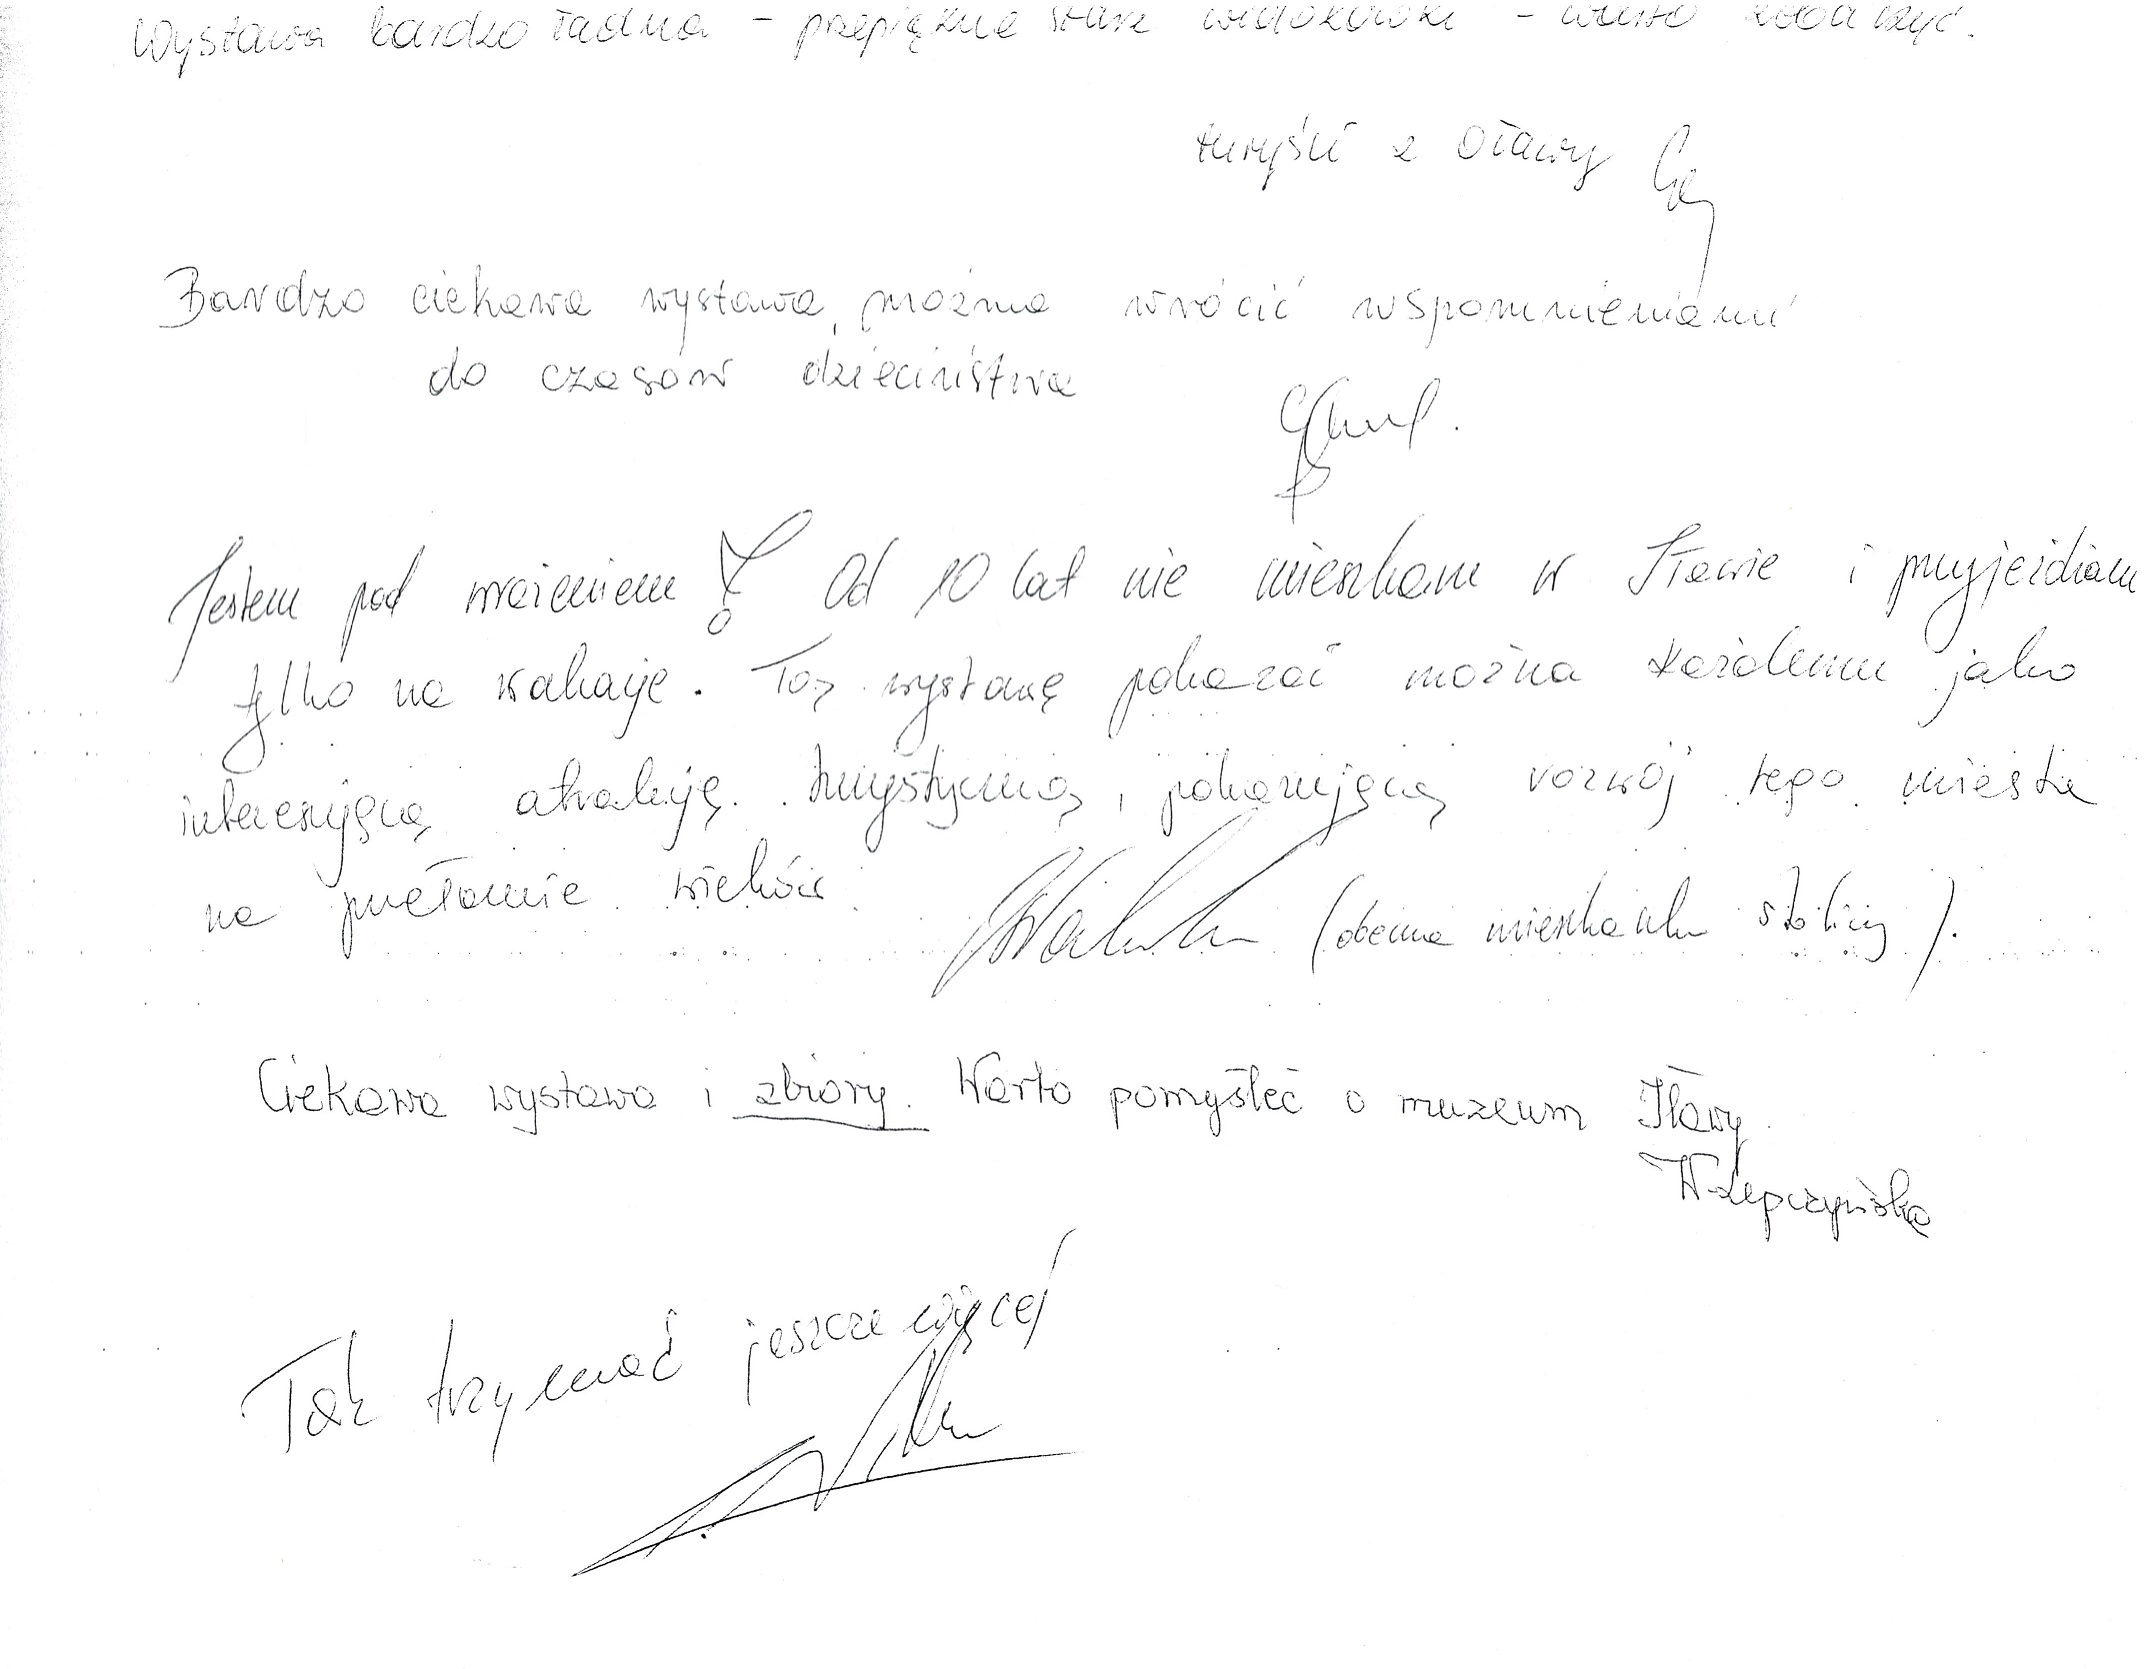 Wystawa bardzo ładna - przepiękne stare widokówki - warto zobaczyć.
turyści z Oławy
Bardzo ciekawa wystawa, można wrócić wspomnieniami
do czasów dzieciństwa
Jestem pod wrażeniem! Od 10 lat nie mieszkam w Iławie i przyjeżdżam
tylko na wakacje. Tą wystawę pokazać można każdemu jako
interesującą atrakcję turystyczną, pokazującą rozwój tego miasta
na przełomie wieków. (obecna mieszkanka stolicy).
Ciekawa wystawa i zbiory. Warto pomyśleć o muzeum Iławy.
Tak trzymać jeszcze więcej